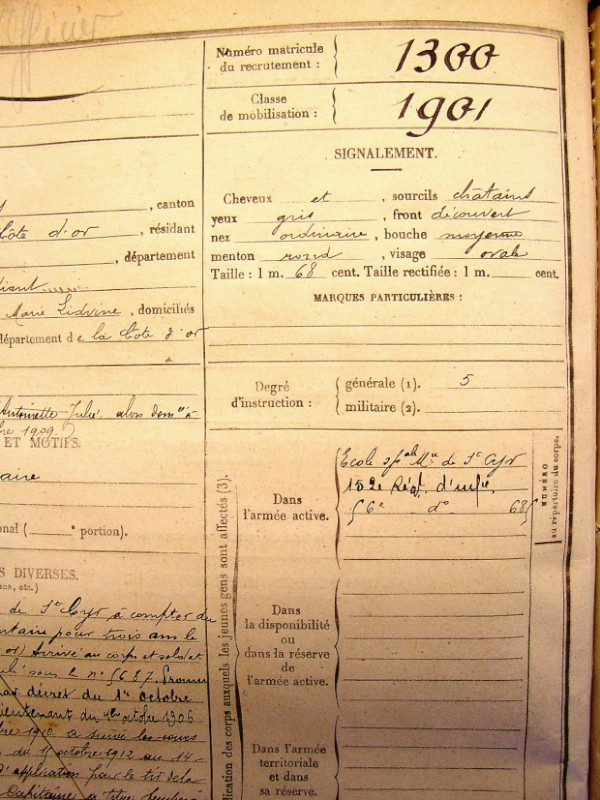 Officier
Numéro matricule
du recrutement :
1300
Classe
de mobilisation :
1901
SIGNALEMENT.
Cheveux et , sourcils châtains
yeux gris , front découvert
nez ordinaire , bouche moyenne
menton rond , visage ovale
Taille : 1 m. 68 cent. Taille rectifiée : 1 m. cent.
MARQUES PARTICULIÈRES :
Degré
d'instruction :
générale (1). 5
militaire (2).
, canton
Côte d'or , résidant
, département
diant
Marie Ludvine , domiciliés
département de la Côte d'or
Antoinette Julie, alors dom
1909
ET MOTIFS.
aire
onal ( e portion).
S DIVERSES.
ons, etc.)
de St Cyr à compter du
ntaire pour trois ans le
or) Arrivé au corps et soldat
sous le n° 5687. Promu
par décret du 1er octobre
lieutenant du 1er octobre 1906
bre 1910 a suivi les cours
du 11 octobre 1912 au 14
d'application pour le tir de la
Capitaine a titre
dication des corps auxquels les jeunes gens sont affectés (3).
Dans
l'armée active.
Ecole spale Mre de St Cyr
152e Régt. d'infie.
56e do 68
NUMÉRO
au répertoire du corps.
Dans
la disponibilité
ou
dans la réserve
de
l'armée active.
Dans l'armée
territoriale
et dans
sa réserve.